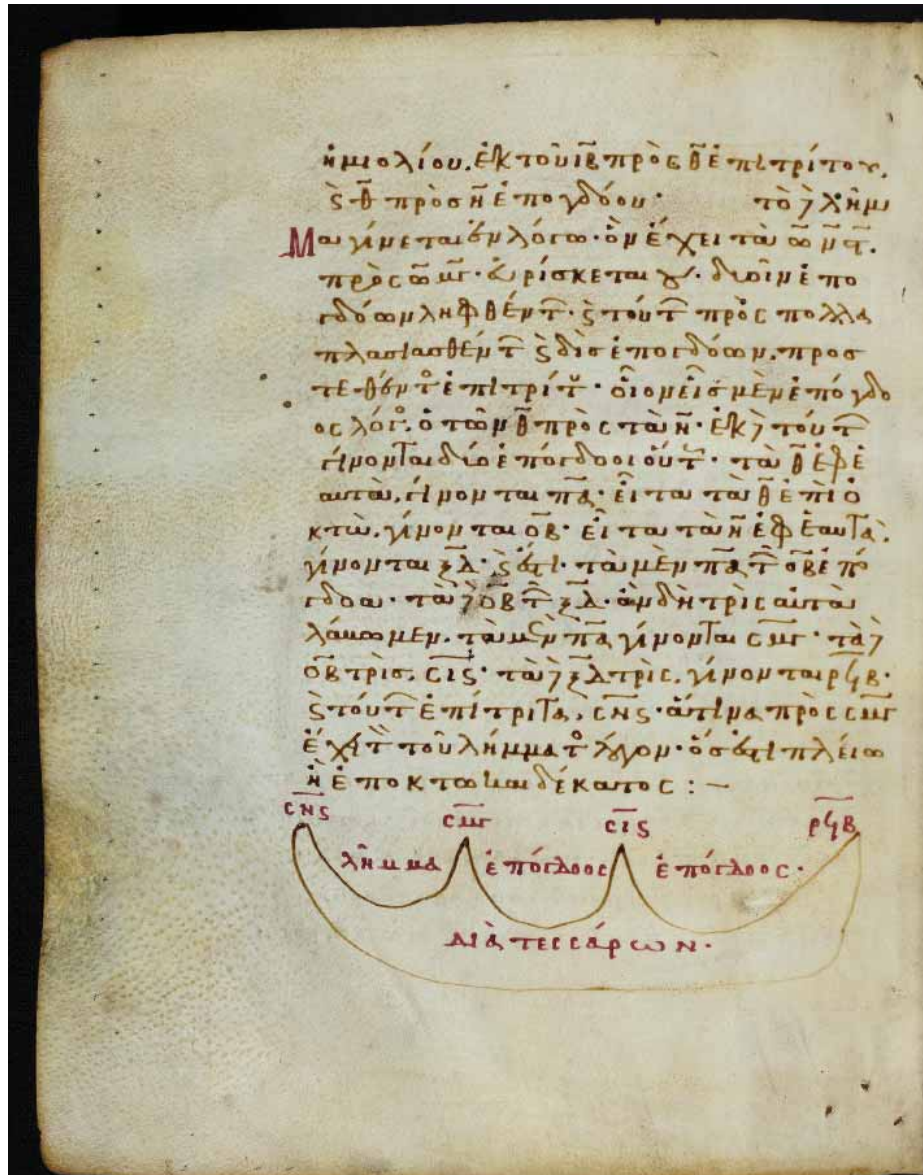 ἡμιολίου. ἐκ τοῦ ιβ πρὸς θ ἐπιτρίτου.
ϛ θ πρὸς η ἐπογδόου· τὸ λῆμ
Μα γίνεται ἐν λόγω· ὃν ἔχει τὰ
πρὸς σμγ· εὑρίσκεται· δυοῖν ἐπο
γδόων ληφθέντ· ϛ τούτ πρὸς πολλα
πλασιασθέντ ϛ δὶς ἐπογδόων. προσ
τεθέντ ἐπιτρίτ· οἷον εἷς μὲν ἐπόγδο
ος λόγ. ὁ τῶν θ πρὸς τὰ η· ἐκ τούτ
γίνονται δύο ἐπόγδοοι οὕτ· τὰ θ ἐφ ἑ
αυτὰ. γίνονται πα· εἶτα τὰ θ ἐπὶ ὀ
κτὼ. γίνονται οβ· εἶτα τὰ η ἐφ ἑαυτὰ.
γίνονται ξδ· ϛ ἐστι· τὰ μὲν πα τ οβ ἐπό
γδοα· τὰ οβ τ ξδ· ἂν δὴ τρὶς αὐτὰ
λάβωμεν. τὰ μὲν πα γίνονται σμγ· τὰ
οβ τρισ. σιϛ· τὰ ξδ τρὶς. γίνονται ρϟβ·
ϛ τούτ ἐπίτριτα. σνϛ· ἅτινα πρὸς σμγ
ἔχει τ τοῦ λήμματ λόγον· ὅς ἐστι πλείω
ἢ ἐποκτωκαιδέκατος : —
σνϛ σμγ σιϛ ρϟβ
λῆμμα ἐπόγδοος ἐπόγδοος·
ΔΙὰ ΤΕССάΡΩΝ·